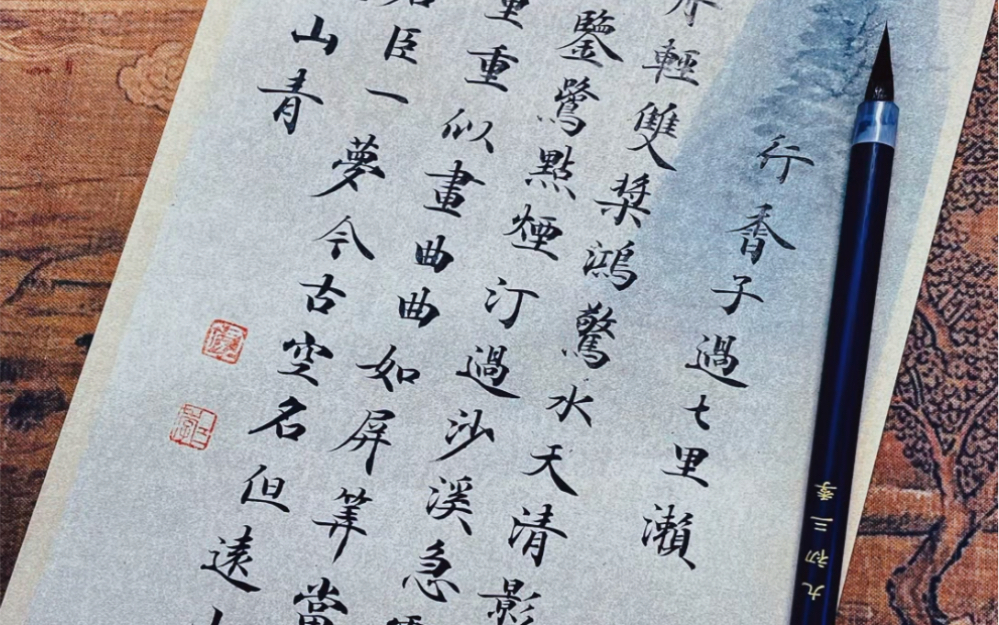 行香子過七里瀨
輕雙槳鴻驚水天清影
鑒鷺點煙汀過沙溪急
重重似畫曲曲如屏筭當
君臣一夢今古空名但遠
山青
九初三季